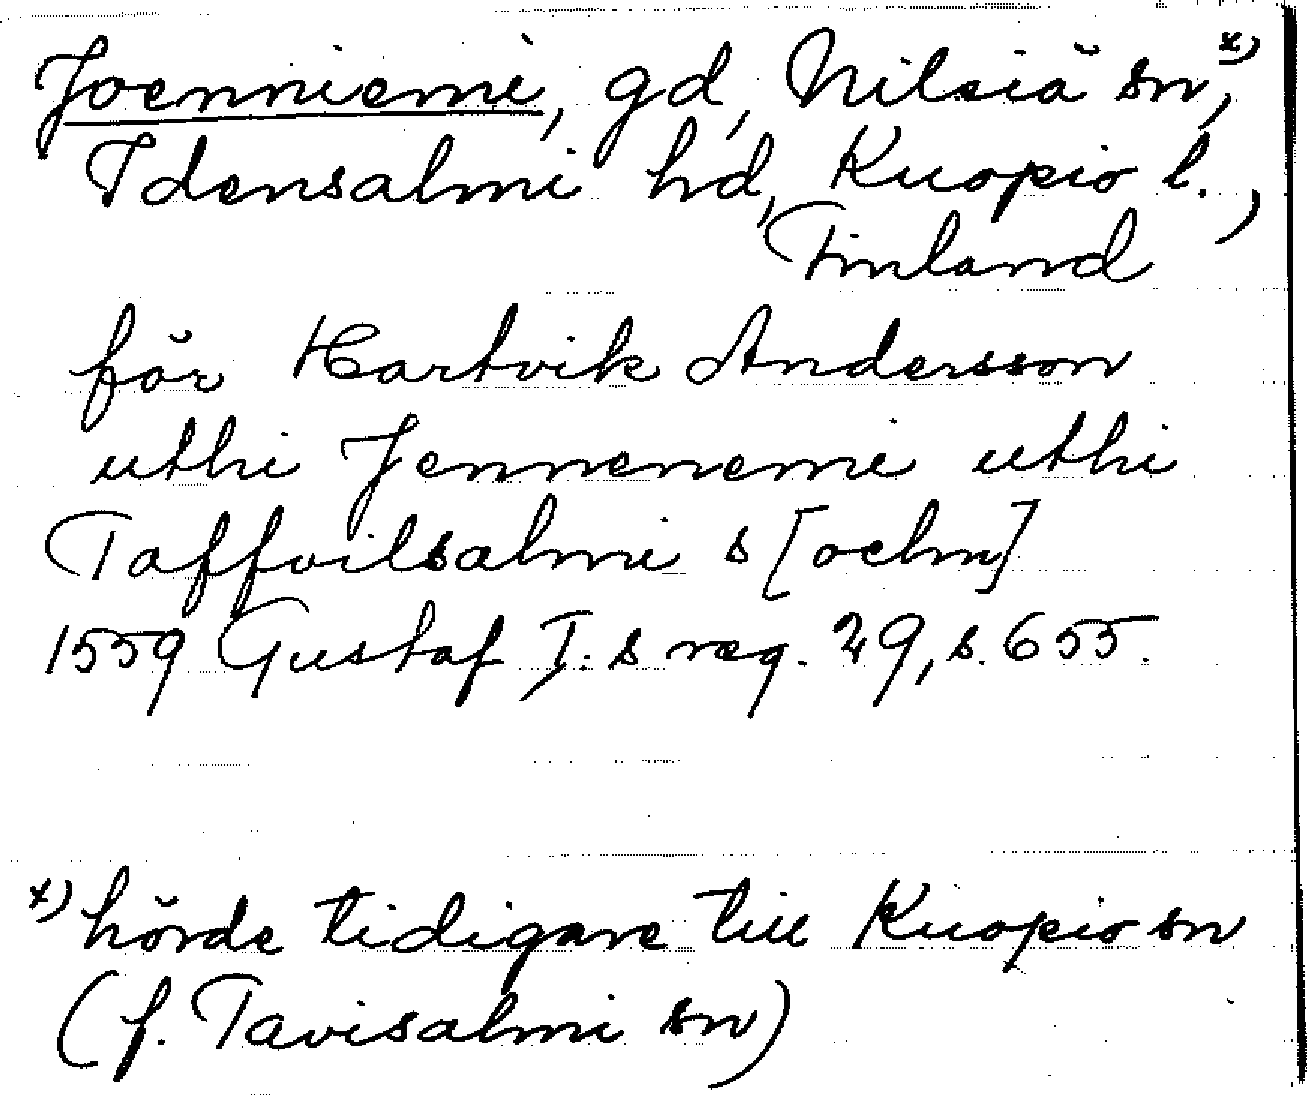 Joenniemi, gd, Nilsiä sn,x)
Idensalmi hd, Kuopio l.,
Finland
för Hartvik Andersson
uthi Jenneneme uthi
Taffvilsalmi s[ochn]
1559 Gustaf I.s reg. 29, s. 655.
x) hörde tidigare till Kuopio sn
(f. Tavisalmi sn)